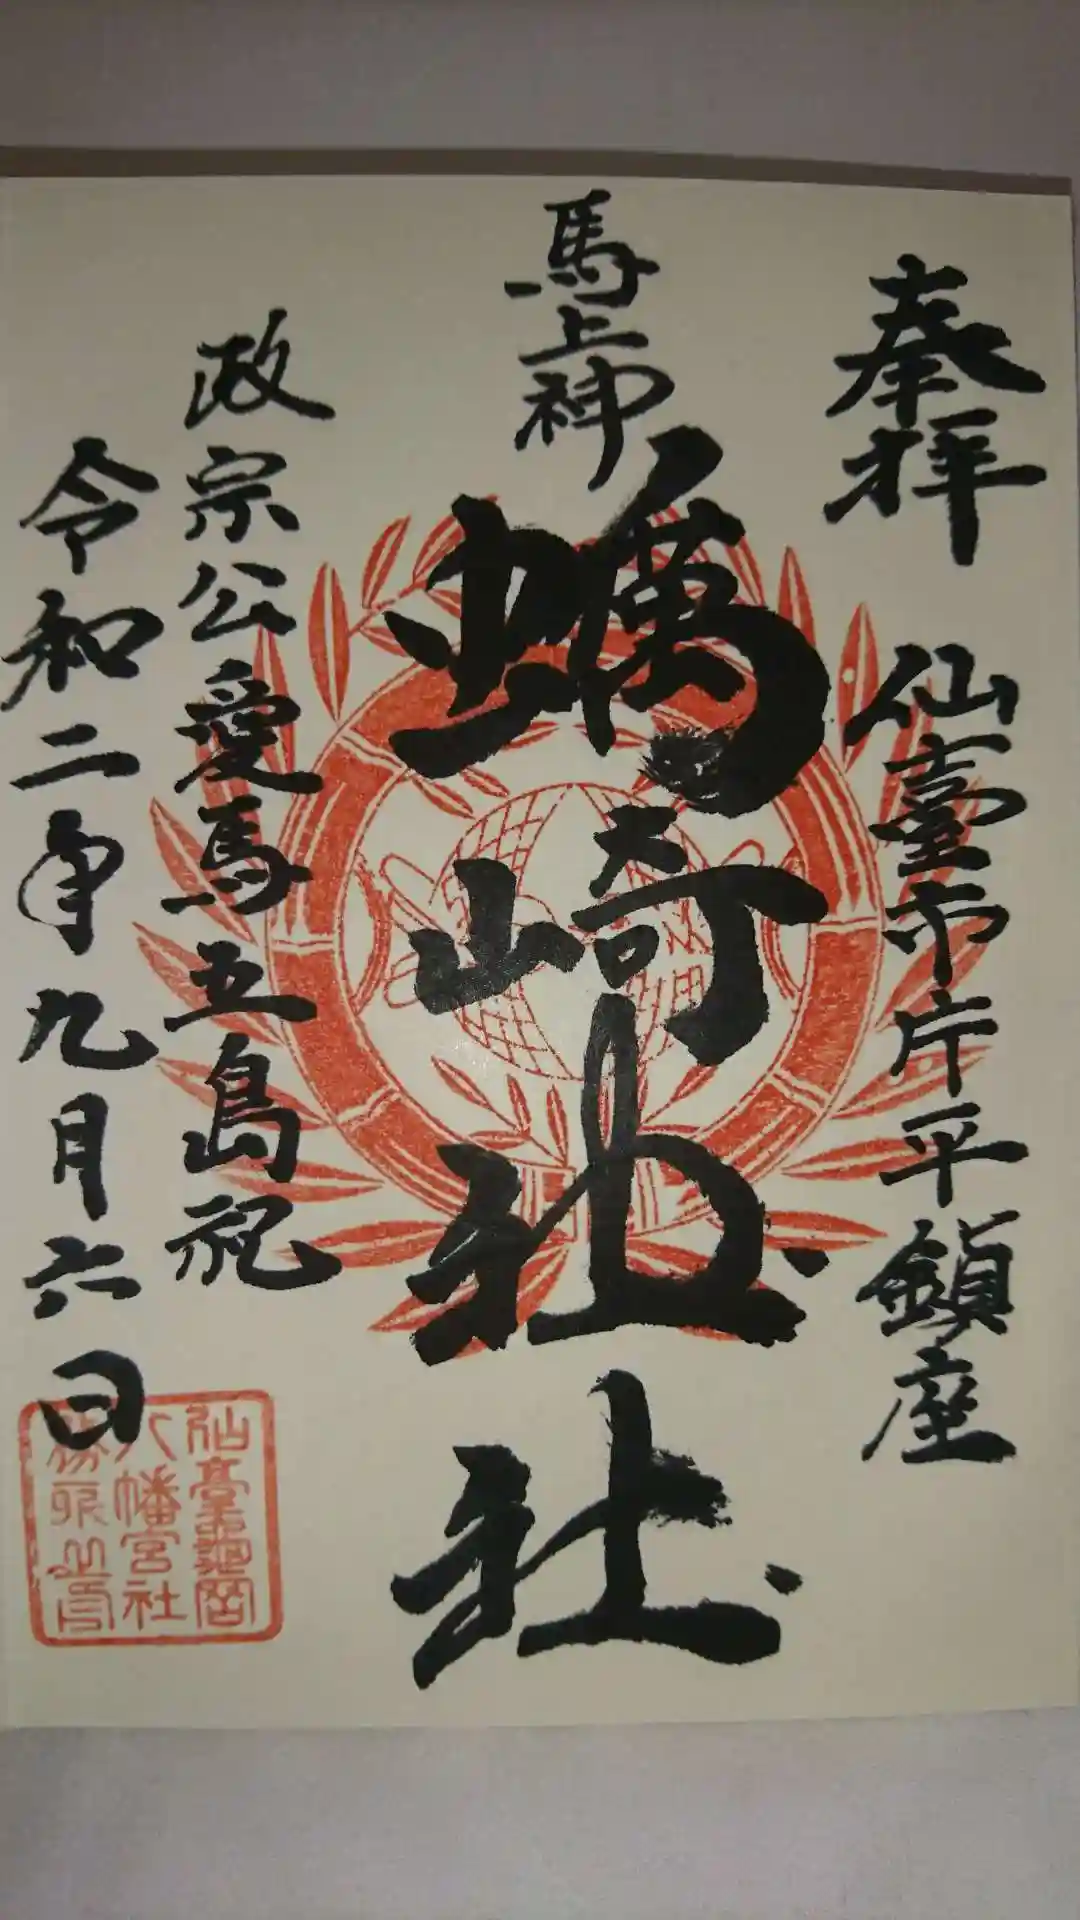 奉拝　仙臺市片平鎮座
馬上神
蠣崎神社
政宗公愛馬五島祀
令和二年九月六日
仙臺龜岡
八幡宮社
務所之印